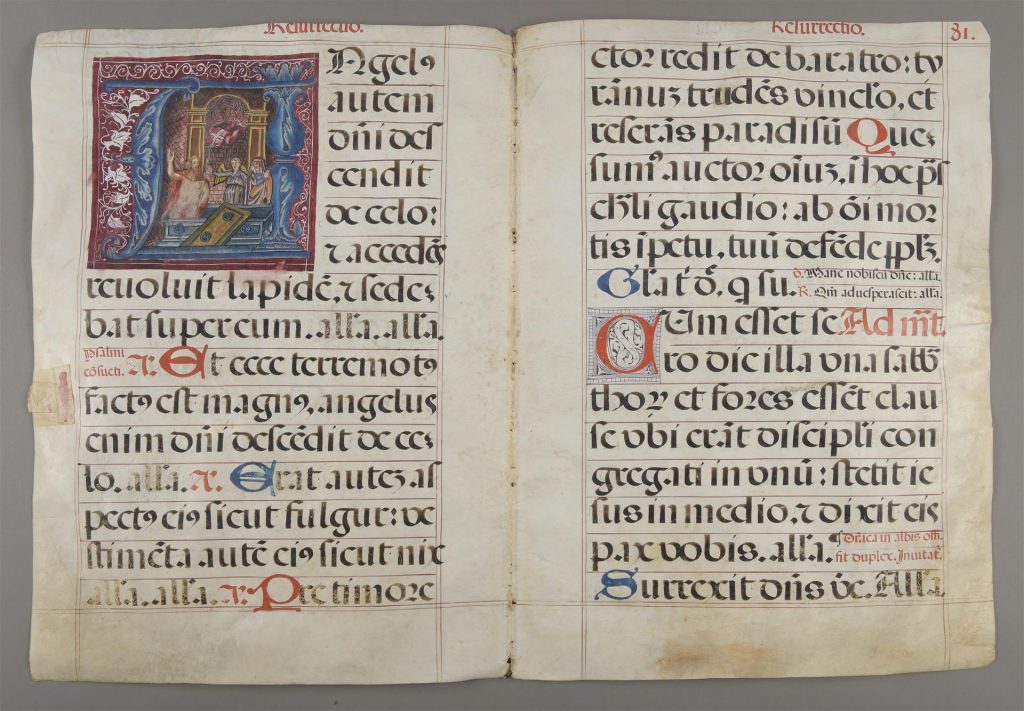 Resurrectio.
Angelꝯ
autem
dñi des
cendit
de celo:
⁊ accedẽs
revoluit lapidẽ, ⁊ sedes
bat super eum. alła. alła.
Psalmi
cõsueti. A. Et ecce terremotꝯ
factꝯ est magnꝯ, angelus
enim dñi descẽdit de ces
lo. alła. A. Erat autez as
pectꝯ eiꝯ sicut fulgur: ve
stimẽta autẽ eiꝯ sicut nix
alła. alła. A. Pre timore
Resurrectio. 81.
ctor redit de baratro: ty
rãnuz trudẽs vinclo, et
reserãs paradisũ Ques
sumꝰ auctor oĩuz, ĩ hoc
gaudio: ab õi mor
tis ĩpetu, tuũ defẽde
q su. V. Mane nobiscũ dñe: alła.
R. Qm̃ advesperascit: alła.
CUm esset se Ad
ro die illa una
et fores essẽt clau
se ubi erãt discipłi con
gregati in unũ: stetit ie
sus in medio, ⁊ dixit eis
pax vobis. alła. ¶ Dñica in albis offi.
fit duplex. Invitat.
Surrexit dñs vẽ. Alła